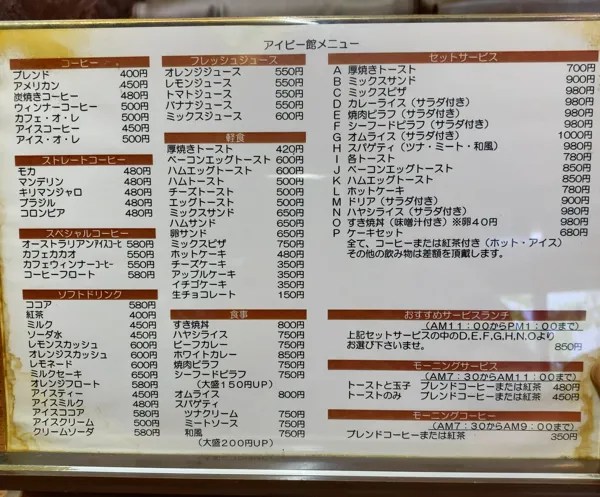 アイビー館メニュー
コーヒー
ブレンド 400円
アメリカン 450円
炭焼きコーヒー 480円
ウィンナーコーヒー 500円
カフェ・オ・レ 500円
アイスコーヒー 450円
アイス・オ・レ 500円
ストレートコーヒー
モカ 480円
マンデリン 480円
キリマンジャロ 480円
ブラジル 480円
コロンビア 480円
スペシャルコーヒー
オーストラリアンアイスコーヒ 580円
カフェカカオ 550円
カフェウィンナーコーヒー 550円
コーヒーフロート 580円
ソフトドリンク
ココア 580円
紅茶 400円
ミルク 450円
ソーダ水 450円
レモンスカッシュ 600円
オレンジスカッシュ 600円
レモネード 600円
ミルクセーキ 650円
オレンジフロート 580円
アイスティー 450円
アイスミルク 480円
アイスココア 580円
アイスクリーム 500円
クリームソーダ 580円
フレッシュジュース
オレンジジュース 550円
レモンジュース 550円
トマトジュース 550円
バナナジュース 550円
ミックスジュース 600円
軽食
厚焼きトースト 420円
ベーコンエッグトースト 600円
ハムエッグトースト 600円
ハムトースト 500円
チーズトースト 500円
エッグトースト 500円
ミックスサンド 650円
ハムサンド 650円
卵サンド 650円
ミックスピザ 750円
ホットケーキ 480円
チーズケーキ 350円
アップルケーキ 350円
イチゴケーキ 350円
生チョコレート 150円
食事
すき焼丼 800円
ハヤシライス 750円
ビーフカレー 750円
ホワイトカレー 850円
焼肉ピラフ 750円
シーフードピラフ 750円
(大盛150円UP)
オムライス 800円
スパゲティ
ツナクリーム 750円
ミートソース 750円
和風 750円
(大盛200円UP)
セットサービス
A 厚焼きトースト 700円
B ミックスサンド 900円
C ミックスピザ 980円
D カレーライス(サラダ付き) 980円
E 焼肉ピラフ(サラダ付き) 980円
F シーフードピラフ(サラダ付き) 980円
G オムライス(サラダ付き) 1000円
H スパゲティ(ツナ・ミート・和風) 980円
I 各トースト 780円
J ベーコンエッグトースト 850円
K ハムエッグトースト 850円
L ホットケーキ 780円
M ドリア(サラダ付き) 900円
N ハヤシライス(サラダ付き) 980円
O すき焼丼(味噌汁付き)※卵40円 980円
P ケーキセット 680円
全て、コーヒーまたは紅茶付き(ホット・アイス)
その他の飲み物は差額を頂戴します。
おすすめサービスランチ
(AM11:00からPM1:00まで)
上記セットサービスの中のD.E.F.G.H.N.Oより
お選び下さいませ。 850円
モーニングサービス
(AM7:30からAM11:00まで)
トーストと玉子 ブレンドコーヒーまたは紅茶 480円
トーストのみ ブレンドコーヒーまたは紅茶 450円
モーニングコーヒー
(AM7:30からAM9:00まで)
ブレンドコーヒーまたは紅茶 350円